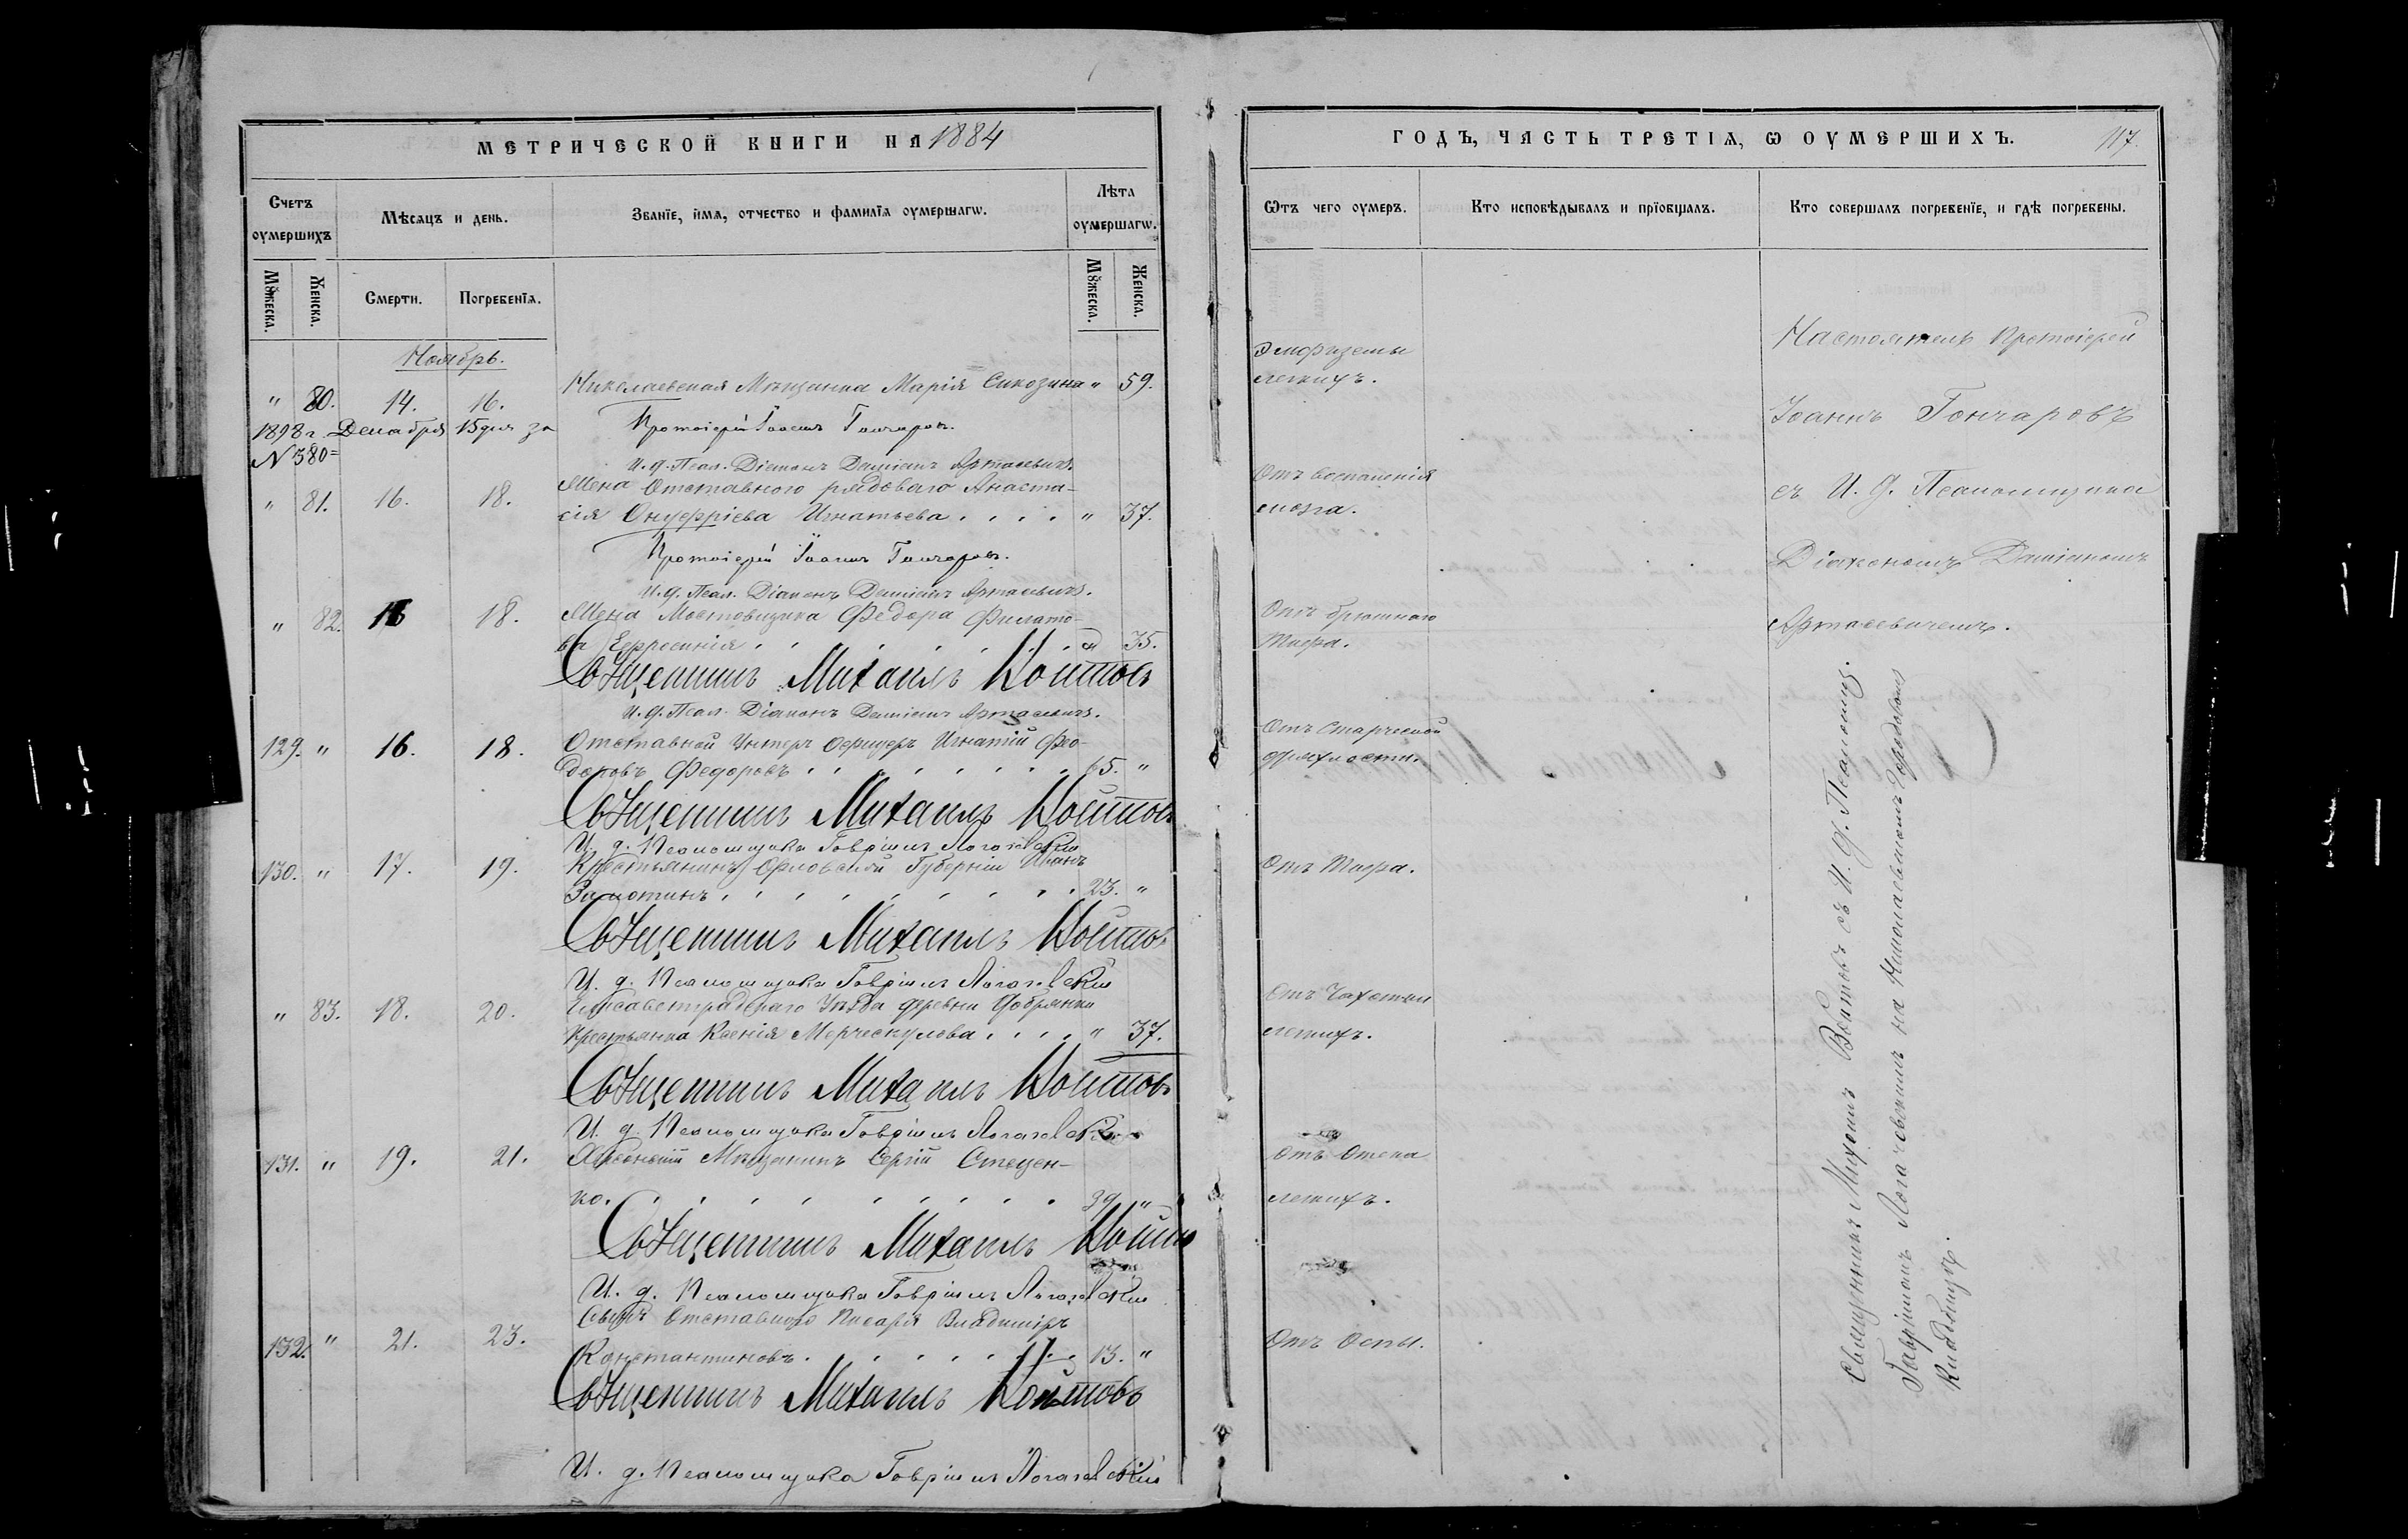 МЕТРИЧЕСКОЙ КНИГИ НА 1884
Счетъ оумершихъ
Мѣсѧцъ и день.
Званїе, имѧ, отчество и фамилїѧ оумершагѡ.
Лѣта оумершагѡ.
Мꙋжеска.
Женска.
Смерти.
Погребенїѧ.
Мꙋжеска.
Женска.
Ноябрь.
" 80. 14. 16. Николаевская Мѣщанка Марія " 59.
1898 г. Декабря 15 дня за
№ 580=
Протоіерей Іоаннъ Гончаровъ.
И. д. Псал. Діаконъ Даміанъ Артасевичъ.
" 81. 16. 18. Жена Отставного рядоваго Анаста-
сія Онуфріева Игнатьева " 37.
Протоіерей Іоаннъ Гончаровъ.
И. д. Псал. Діаконъ Даміанъ Артасевичъ.
" 82. 16 18. Жена Мостовщика Федора Филато-
ва Ефросинія " 35.
Священникъ Михаилъ Войтовъ
И. д. Псал. Діаконъ Даміанъ Артасевичъ.
129. " 16. 18. Отставной Унтеръ Офицеръ Игнатій Фео-
доровъ Федоровъ 65. "
Священникъ Михаилъ Войтовъ
И. д. Псаломщика Гавріилъ Логачевскій
130. " 17. 19. Крестьянинъ Орловской Губерніи Иванъ
Замотинъ 23. "
Священникъ Михаилъ Войтовъ
И. д. Псаломщика Гавріилъ Логачевскій
" 83. 18. 20. Елисаветградскаго Уѣзда деревни Добрянки
Крестьянка Ксенія Мерческулова " 37.
Священникъ Михаилъ Войтовъ
И. д. Псаломщика Гавріилъ Логачевскій
131. " 19. 21. Херсонскій Мѣщанинъ Сергій Стецен-
ко. 39 "
Священникъ Михаилъ Войтовъ
И. д. Псаломщика Гавріилъ Логачевскій
132. " 21. 23. Сынъ Отставного Писаря Владиміръ
Константиновъ. 13. "
Священникъ Михаилъ Войтовъ
И. д. Псаломщика Гавріилъ Логачевскій
ГОДЪ, ЧАСТЬ ТРЕТІѦ, Ѡ ОУМЕРШИХЪ.
117.
Ѿтъ чего оумеръ.
Кто исповѣдывалъ и прїобщалъ.
Кто совершалъ погребенїе, и гдѣ погребены.
Эмфиземы
легкихъ.
Отъ воспаленія
мозга.
Отъ брюшнаго
тифа.
Отъ Старческой
дряхлости.
Отъ Тифа.
Отъ Чахотки
легкихъ.
Отъ Отека
легкихъ.
Отъ Оспы.
Настоятель Протоіерей
Іоаннъ Гончаровъ
съ И. д. Псаломщика
Діакономъ Даміаномъ
Артасевичемъ.
Священникъ Михаилъ Войтовъ съ И. д. Псаломщ.
Гавріиломъ Логачевскимъ на Николаевскомъ Городовомъ
Кладбищѣ.